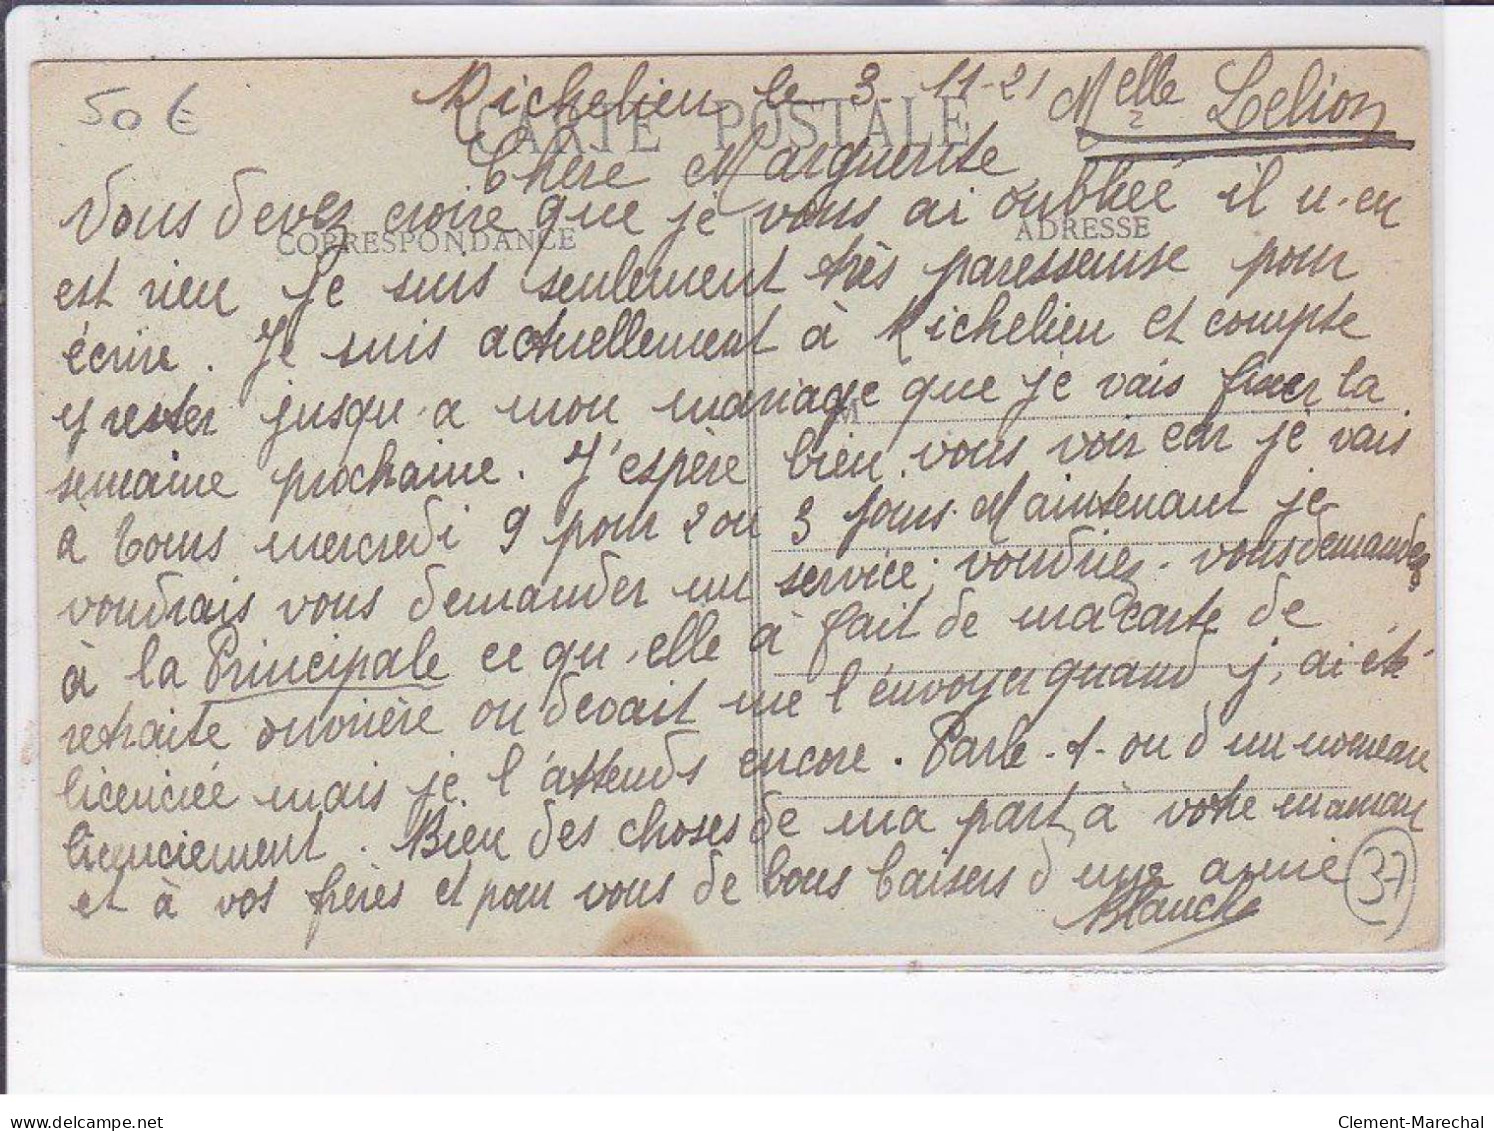 50 €
Richelieu le 3-11-21 Melle Lelion
CARTE POSTALE
Chère Marguerite
Vous devez croire que je vous ai oubliée il n'en
CORRESPONDANCE
ADRESSE
est rien Je suis seulement très paresseuse pour
écrire. Je suis actuellement à Richelieu et compte
y rester jusqu'a mon mariage que je vais fixer la
M
semaine prochaine. J'espère bien vous voir car je vais
à Tours mercredi 9 pour 2 ou 3 jours. Maintenant je
voudrais vous demander un service; voudriez-vous demander
à la Principale ce qu'elle à fait de ma carte de
retraite ouvrière on devait me l'envoyer quand j'ai été
licenciée mais je l'attends encore. Parle-t-on d'un nouveau
licenciement. Bien des choses de ma part à votre maman
et à vos frères et pour vous de bons baisers d'une amie
Blanche
37
delcampe.net
Clement-Marechal